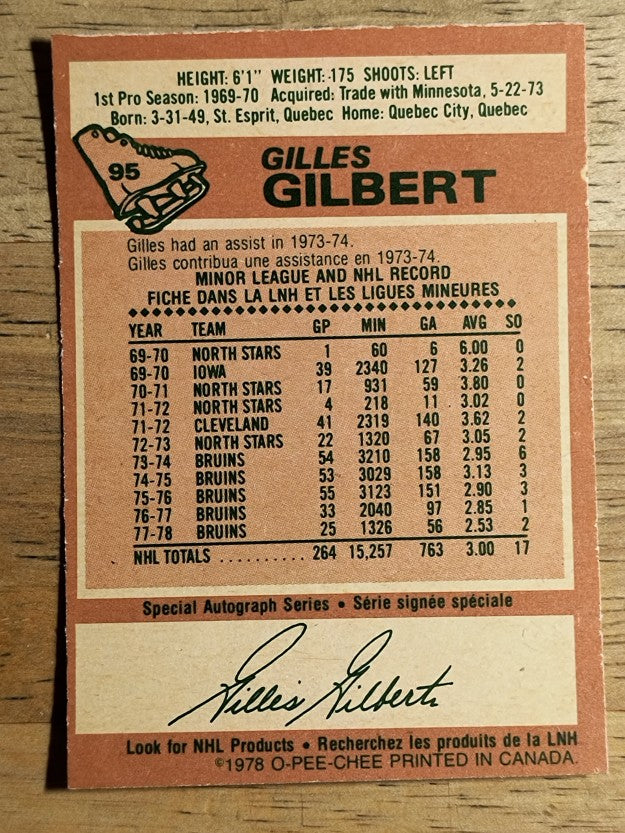 HEIGHT: 6'1" WEIGHT: 175 SHOOTS: LEFT
1st Pro Season: 1969-70 Acquired: Trade with Minnesota, 5-22-73
Born: 3-31-49, St. Esprit, Quebec Home: Quebec City, Quebec
95
GILLES
GILBERT
Gilles had an assist in 1973-74.
Gilles contribua une assistance en 1973-74.
MINOR LEAGUE AND NHL RECORD
FICHE DANS LA LNH ET LES LIGUES MINEURES
YEAR TEAM GP MIN GA AVG SO
69-70 NORTH STARS 1 60 6 6.00 0
69-70 IOWA 39 2340 127 3.26 2
70-71 NORTH STARS 17 931 59 3.80 0
71-72 NORTH STARS 4 218 11 3.02 0
71-72 CLEVELAND 41 2319 140 3.62 2
72-73 NORTH STARS 22 1320 67 3.05 2
73-74 BRUINS 54 3210 158 2.95 6
74-75 BRUINS 53 3029 158 3.13 3
75-76 BRUINS 55 3123 151 2.90 3
76-77 BRUINS 33 2040 97 2.85 1
77-78 BRUINS 25 1326 56 2.53 2
NHL TOTALS .......... 264 15,257 763 3.00 17
Special Autograph Series • Série signée spéciale
Gilles Gilbert
Look for NHL Products • Recherchez les produits de la LNH
©1978 O-PEE-CHEE PRINTED IN CANADA.